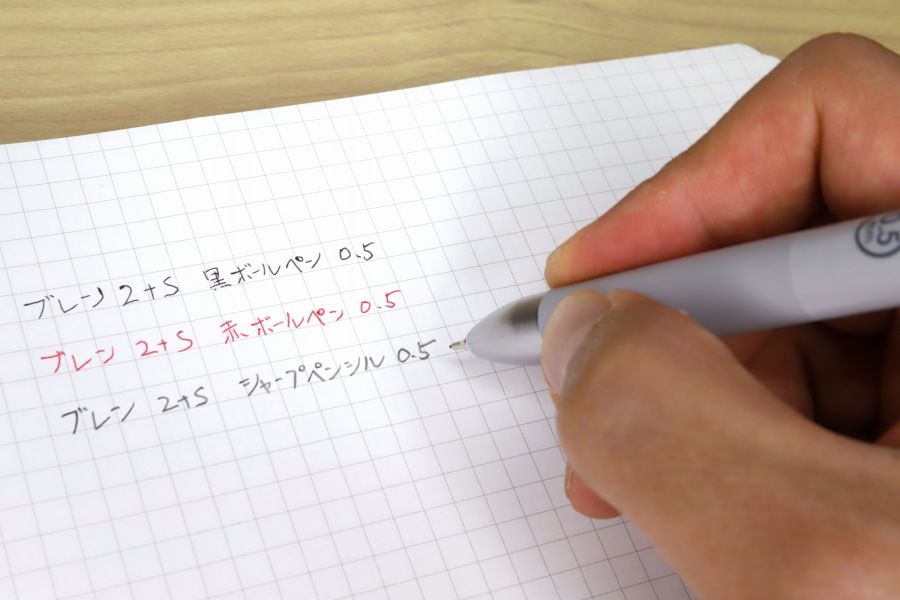 ブレン 2+S 黒ボールペン 0.5
ブレン 2+S 赤ボールペン 0.5
ブレン 2+S シャープペンシル 0.5
0.5